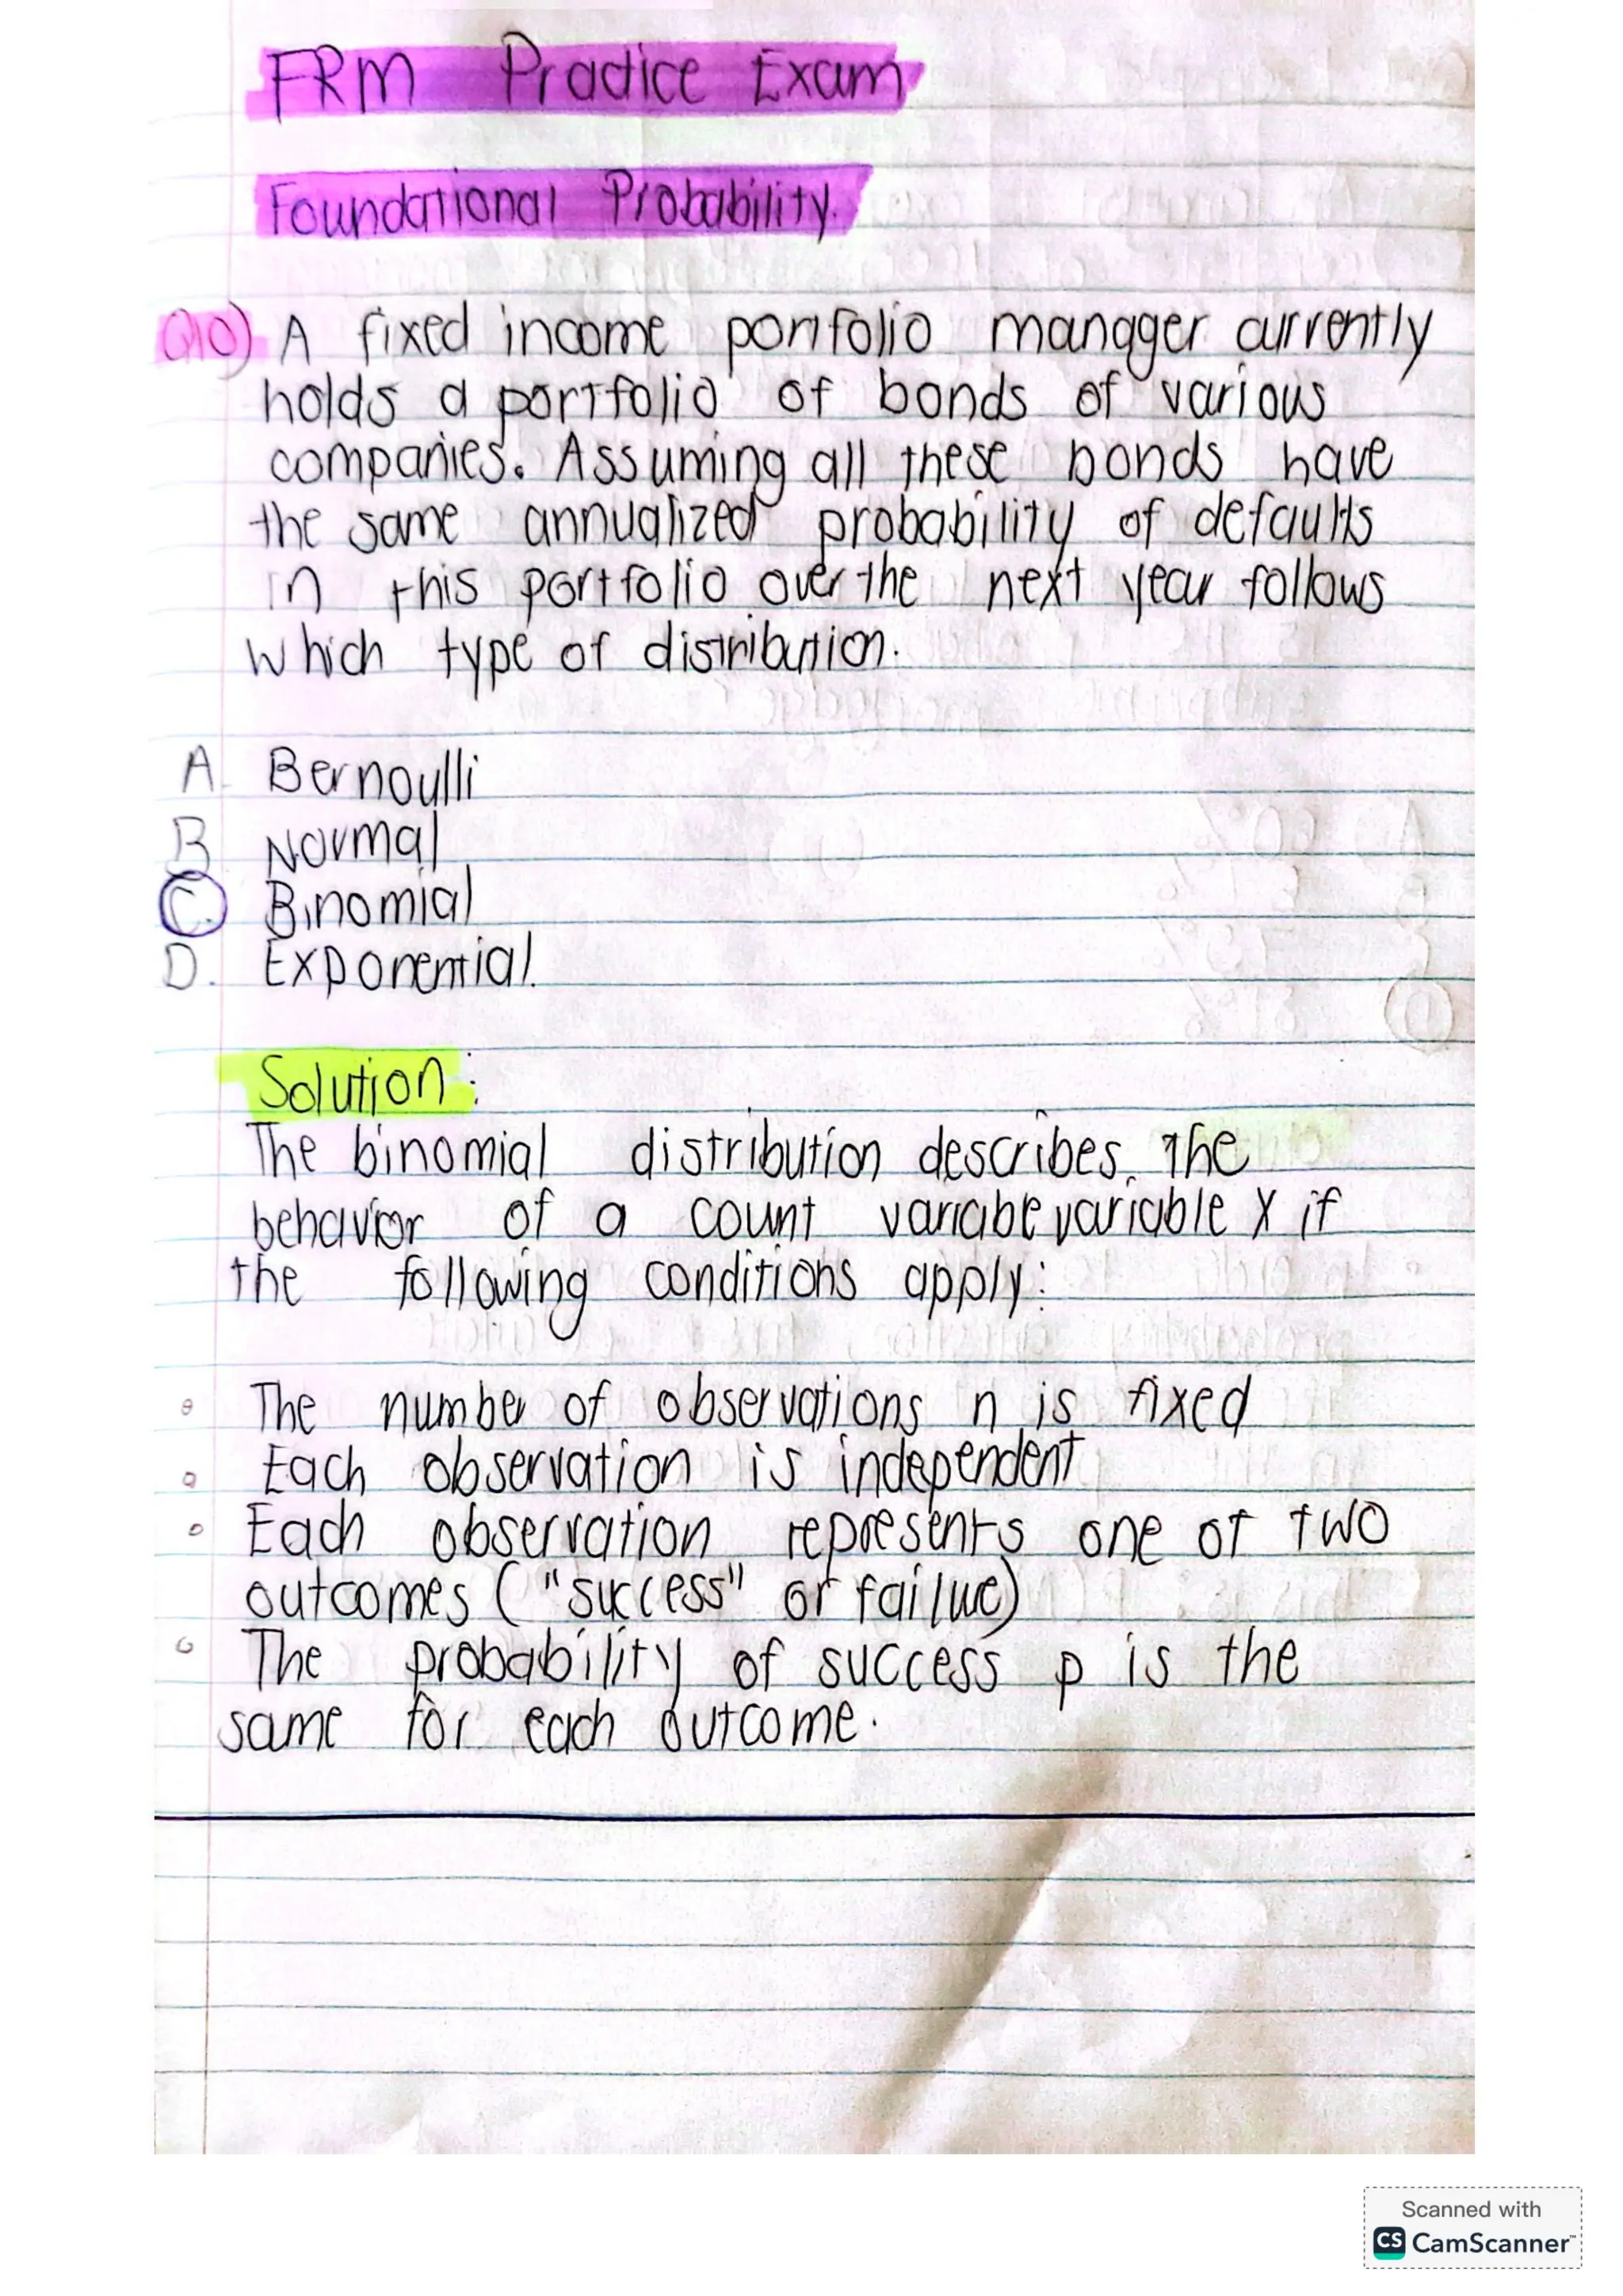 FRM Practice Exam
Foundational Probability.
Q10) A fixed income portfolio manager currently
holds a portfolio of bonds of various
companies. Assuming all these bonds have
the same annualized probability of defaults
in this portfolio over the next year follows
which type of distribution.
A. Bernoulli
B Normal
C. Binomial
D. Exponential.
Solution:
The binomial distribution describes the
behavior of a count variable variable X if
the following conditions apply:
The number of observations n is fixed
Each observation is independent
Each observation represents one of two
outcomes ("success" or failure)
The probability of success p is the
same for each outcome.
Scanned with
CS CamScanner™